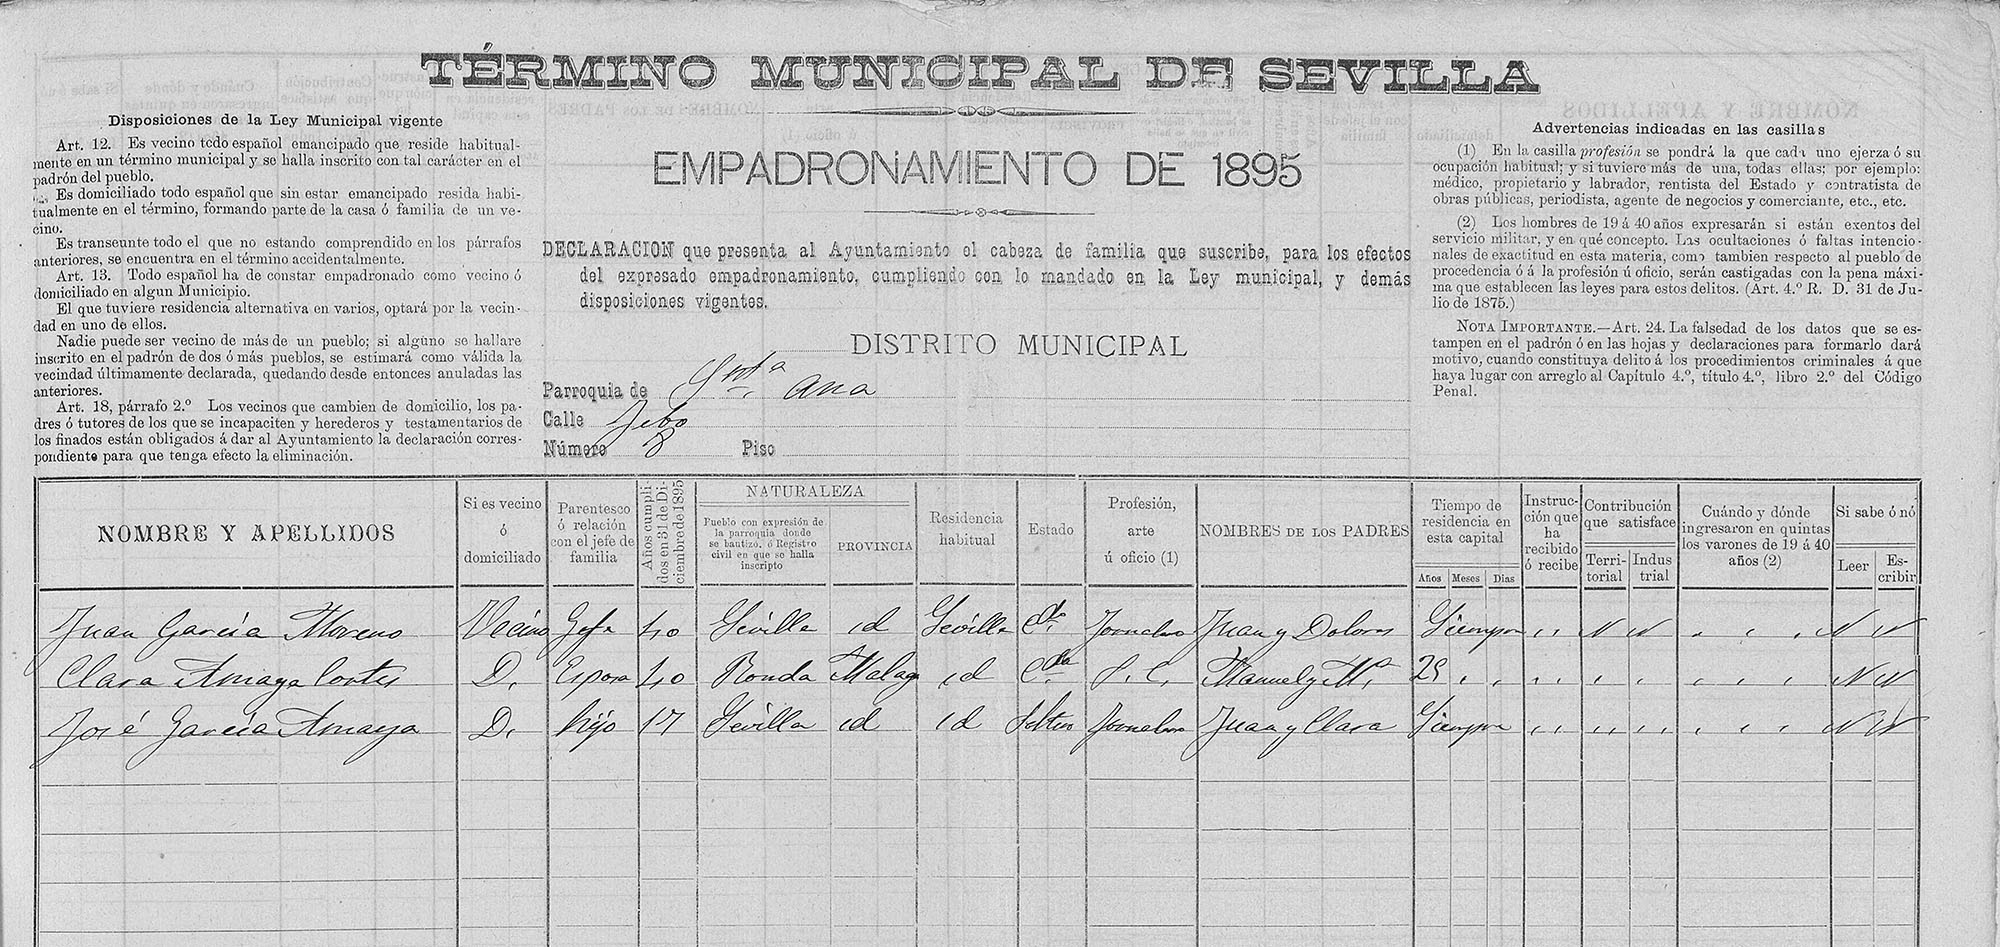 TÉRMINO MUNICIPAL DE SEVILLA
EMPADRONAMIENTO DE 1895
Disposiciones de la Ley Municipal vigente
Art. 12. Es vecino todo español emancipado que reside habitual-
mente en un término municipal y se halla inscrito con tal carácter en el
padrón del pueblo.
Es domiciliado todo español que sin estar emancipado resida habi-
tualmente en el término, formando parte de la casa ó familia de un ve-
cino.
Es transeunte todo el que no estando comprendido en los párrafos
anteriores, se encuentra en el término accidentalmente.
Art. 13. Todo español ha de constar empadronado como vecino ó
domiciliado en algun Municipio.
El que tuviere residencia alternativa en varios, optará por la vecin-
dad en uno de ellos.
Nadie puede ser vecino de más de un pueblo; si alguno se hallare
inscrito en el padrón de dos ó más pueblos, se estimará como válida la
vecindad últimamente declarada, quedando desde entonces anuladas las
anteriores.
Art. 18, párrafo 2.º Los vecinos que cambien de domicilio, los pa-
dres ó tutores de los que se incapaciten y herederos y testamentarios de
los finados están obligados á dar al Ayuntamiento la declaración corres-
pondiente para que tenga efecto la eliminación.
DECLARACION que presenta al Ayuntamiento el cabeza de familia que suscribe, para los efectos
del expresado empadronamiento, cumpliendo con lo mandado en la Ley municipal, y demás
disposiciones vigentes.
DISTRITO MUNICIPAL
Parroquia de Snta Ana
Calle
Número 8 Piso
Advertencias indicadas en las casillas
(1) En la casilla profesión se pondrá la que cada uno ejerza ó su
ocupación habitual; y si tuviere más de una, todas ellas; por ejemplo:
médico, propietario y labrador, rentista del Estado y contratista de
obras públicas, periodista, agente de negocios y comerciante, etc., etc.
(2) Los hombres de 19 á 40 años expresarán si están exentos del
servicio militar, y en qué concepto. Las ocultaciones ó faltas intencio-
nales de exactitud en esta materia, como tambien respecto al pueblo de
procedencia ó á la profesión ú oficio, serán castigadas con la pena máxi-
ma que establecen las leyes para estos delitos. (Art. 4.º R. D. 31 de Ju-
lio de 1875.)
NOTA IMPORTANTE.—Art. 24. La falsedad de los datos que se es-
tampen en el padrón ó en las hojas y declaraciones para formarlo dará
motivo, cuando constituya delito á los procedimientos criminales á que
haya lugar con arreglo al Capítulo 4.º, título 4.º, libro 2.º del Código
Penal.
NOMBRE Y APELLIDOS
Si es vecino
ó
domiciliado
Parentesco
ó relación
con el jefe de
familia
Años cumpli-
dos en 31 de Di-
ciembre de 1895
NATURALEZA
Pueblo con expresión de
la parroquia donde
se bautizó, ó Registro
civil en que se halla
inscripto
PROVINCIA
Residencia
habitual
Estado
Profesión,
arte
ú oficio (1)
NOMBRES DE LOS PADRES
Tiempo de
residencia en
esta capital
Años Meses Dias
Instruc-
ción que
ha
recibido
ó recibe
Contribución
que satisface
Terri-
torial
Indus
trial
Cuándo y dónde
ingresaron en quintas
los varones de 19 á 40
años (2)
Si sabe ó nó
Leer
Es-
cribir
Juan García Moreno Vecino Gefe 40 Sevilla id Sevilla Cdo Jornalero Juan y Dolores Siempre " N N " " " N N
Clara Amaya Cortes D. Esposa 40 Ronda Malag id Cda S. C. Manuel y Mª " " " " " " " " N N
José García Amaya D. hijo 17 Sevilla id id Soltero Jornalero Juan y Clara Siempre " " " " " " N N